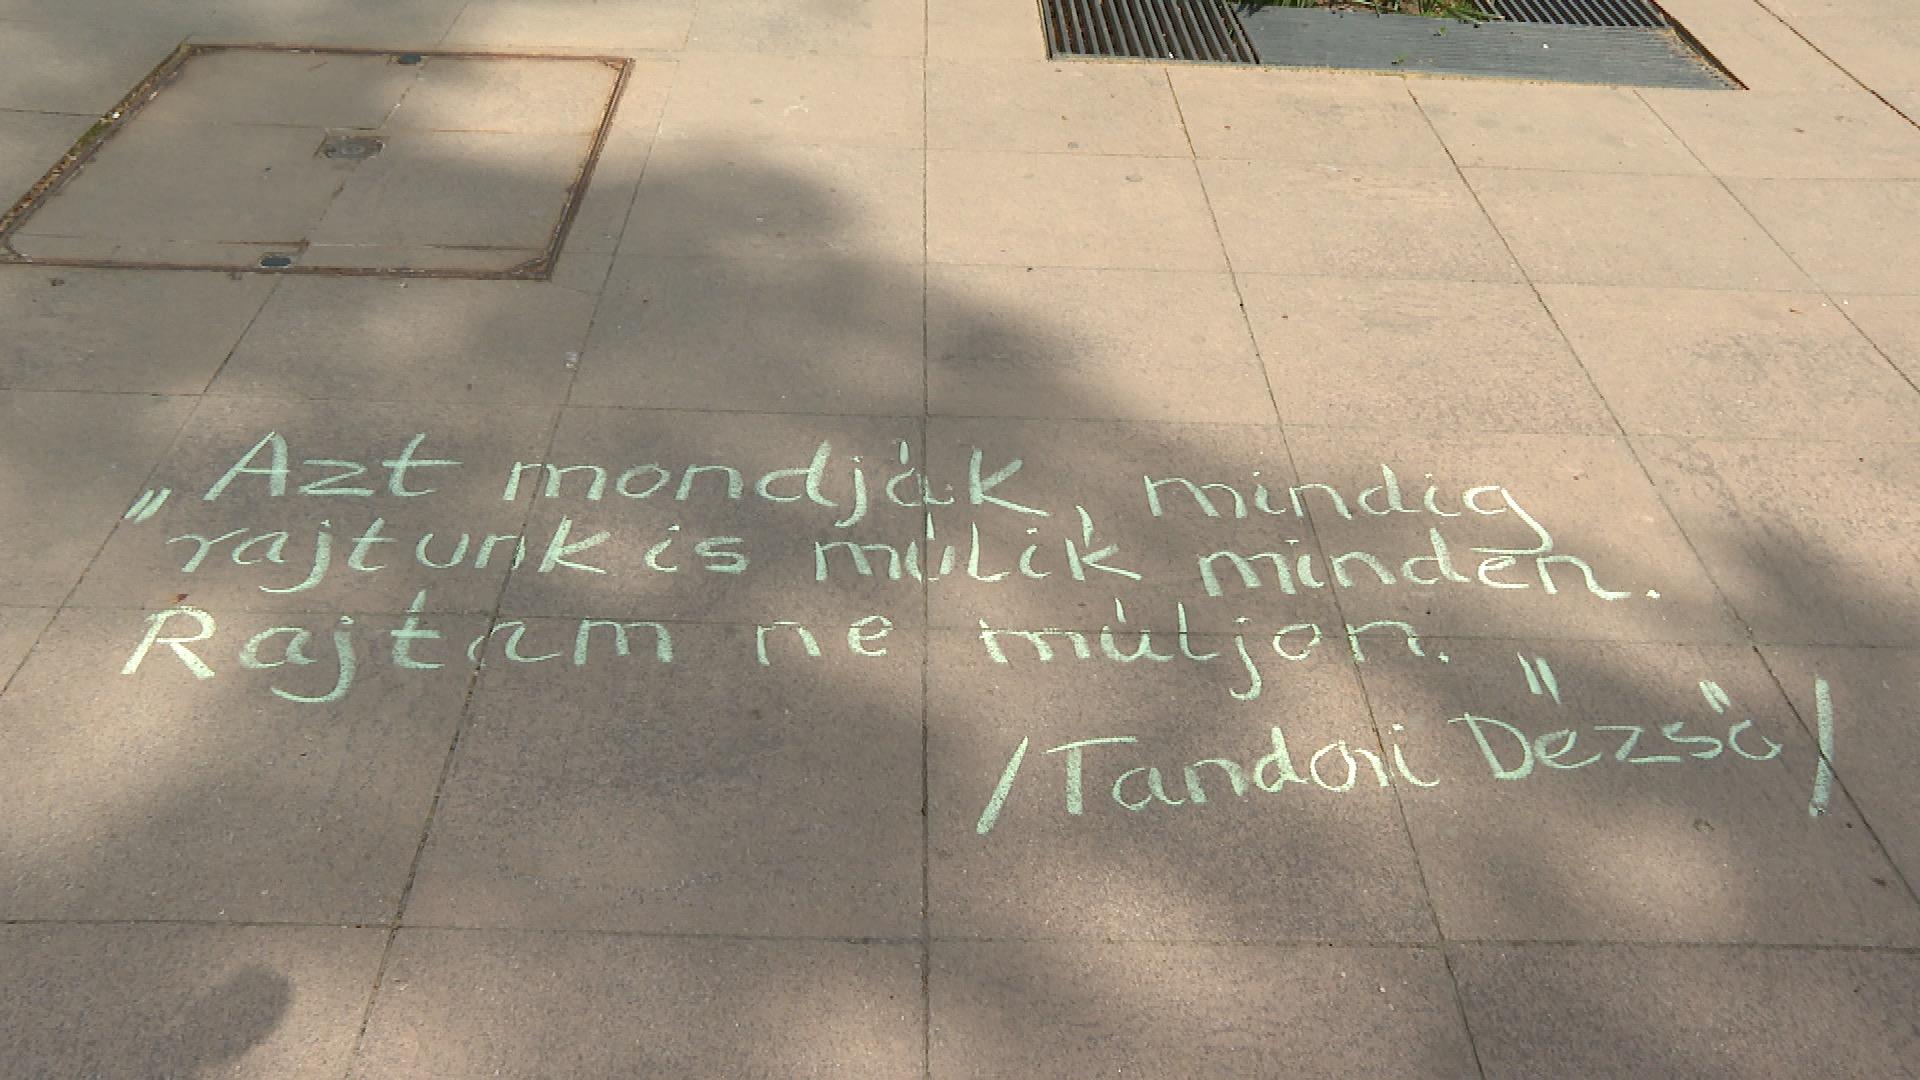 „Azt mondják, mindig
rajtunk is múlik minden.
Rajtam ne múljon."
/Tandori Dezső/